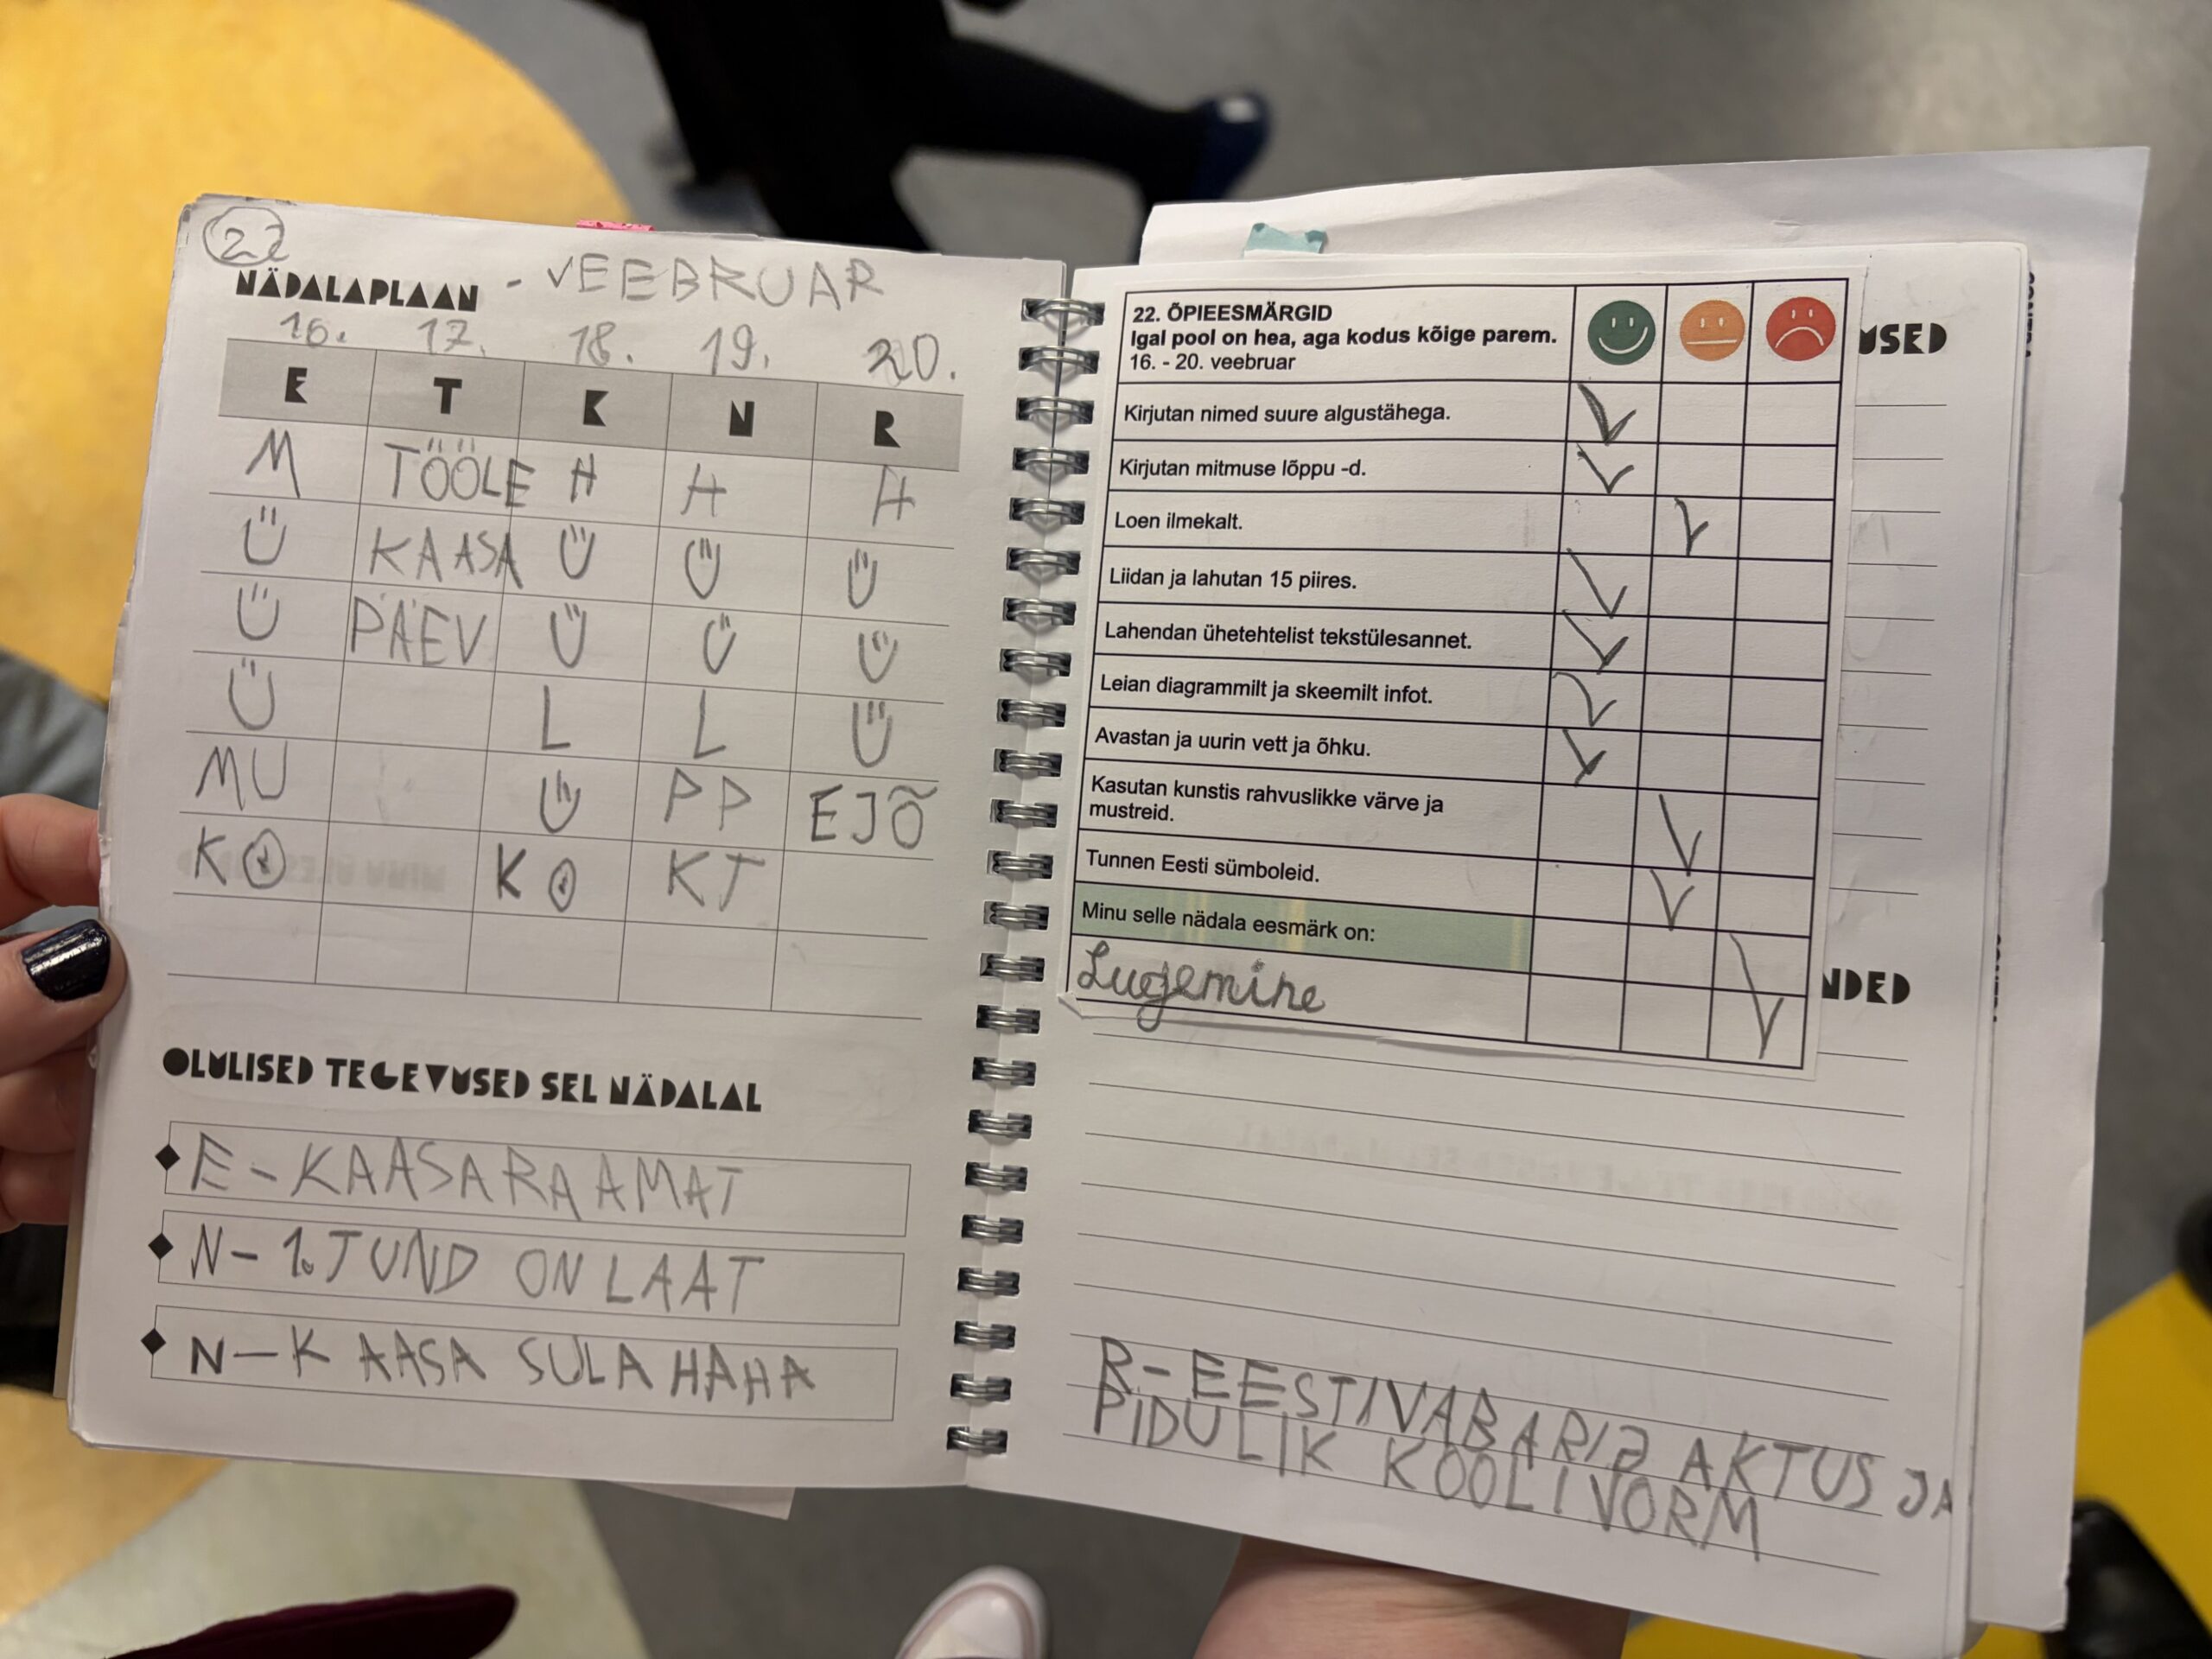 22
NÄDALAPLAAN - VEEBRUAR
16. 17. 18. 19. 20.
E T K N R
M TÖÖLE H H H
Ü KAASA Ü Ü Ü
Ü PÄEV Ü Ü Ü
Ü L L Ü
MU Ü PP EJÕ
K K KT
OLULISED TEGEVUSED SEL NÄDALAL
E - KAASA RAAMAT
N - 1. TUND ON LAAT
N - KAASA SULAHAHA
22. ÕPIEESMÄRGID
Igal pool on hea, aga kodus kõige parem.
16. - 20. veebruar
Kirjutan nimed suure algustähega.
Kirjutan mitmuse lõppu -d.
Loen ilmekalt.
Liidan ja lahutan 15 piires.
Lahendan ühetehtelist tekstülesannet.
Leian diagrammilt ja skeemilt infot.
Avastan ja uurin vett ja õhku.
Kasutan kunstis rahvuslikke värve ja
mustreid.
Tunnen Eesti sümboleid.
Minu selle nädala eesmärk on:
Lugemine
USED
NDED
R - EESTI VABARIA AKTUS JA
PIDULIK KOOLIVORM